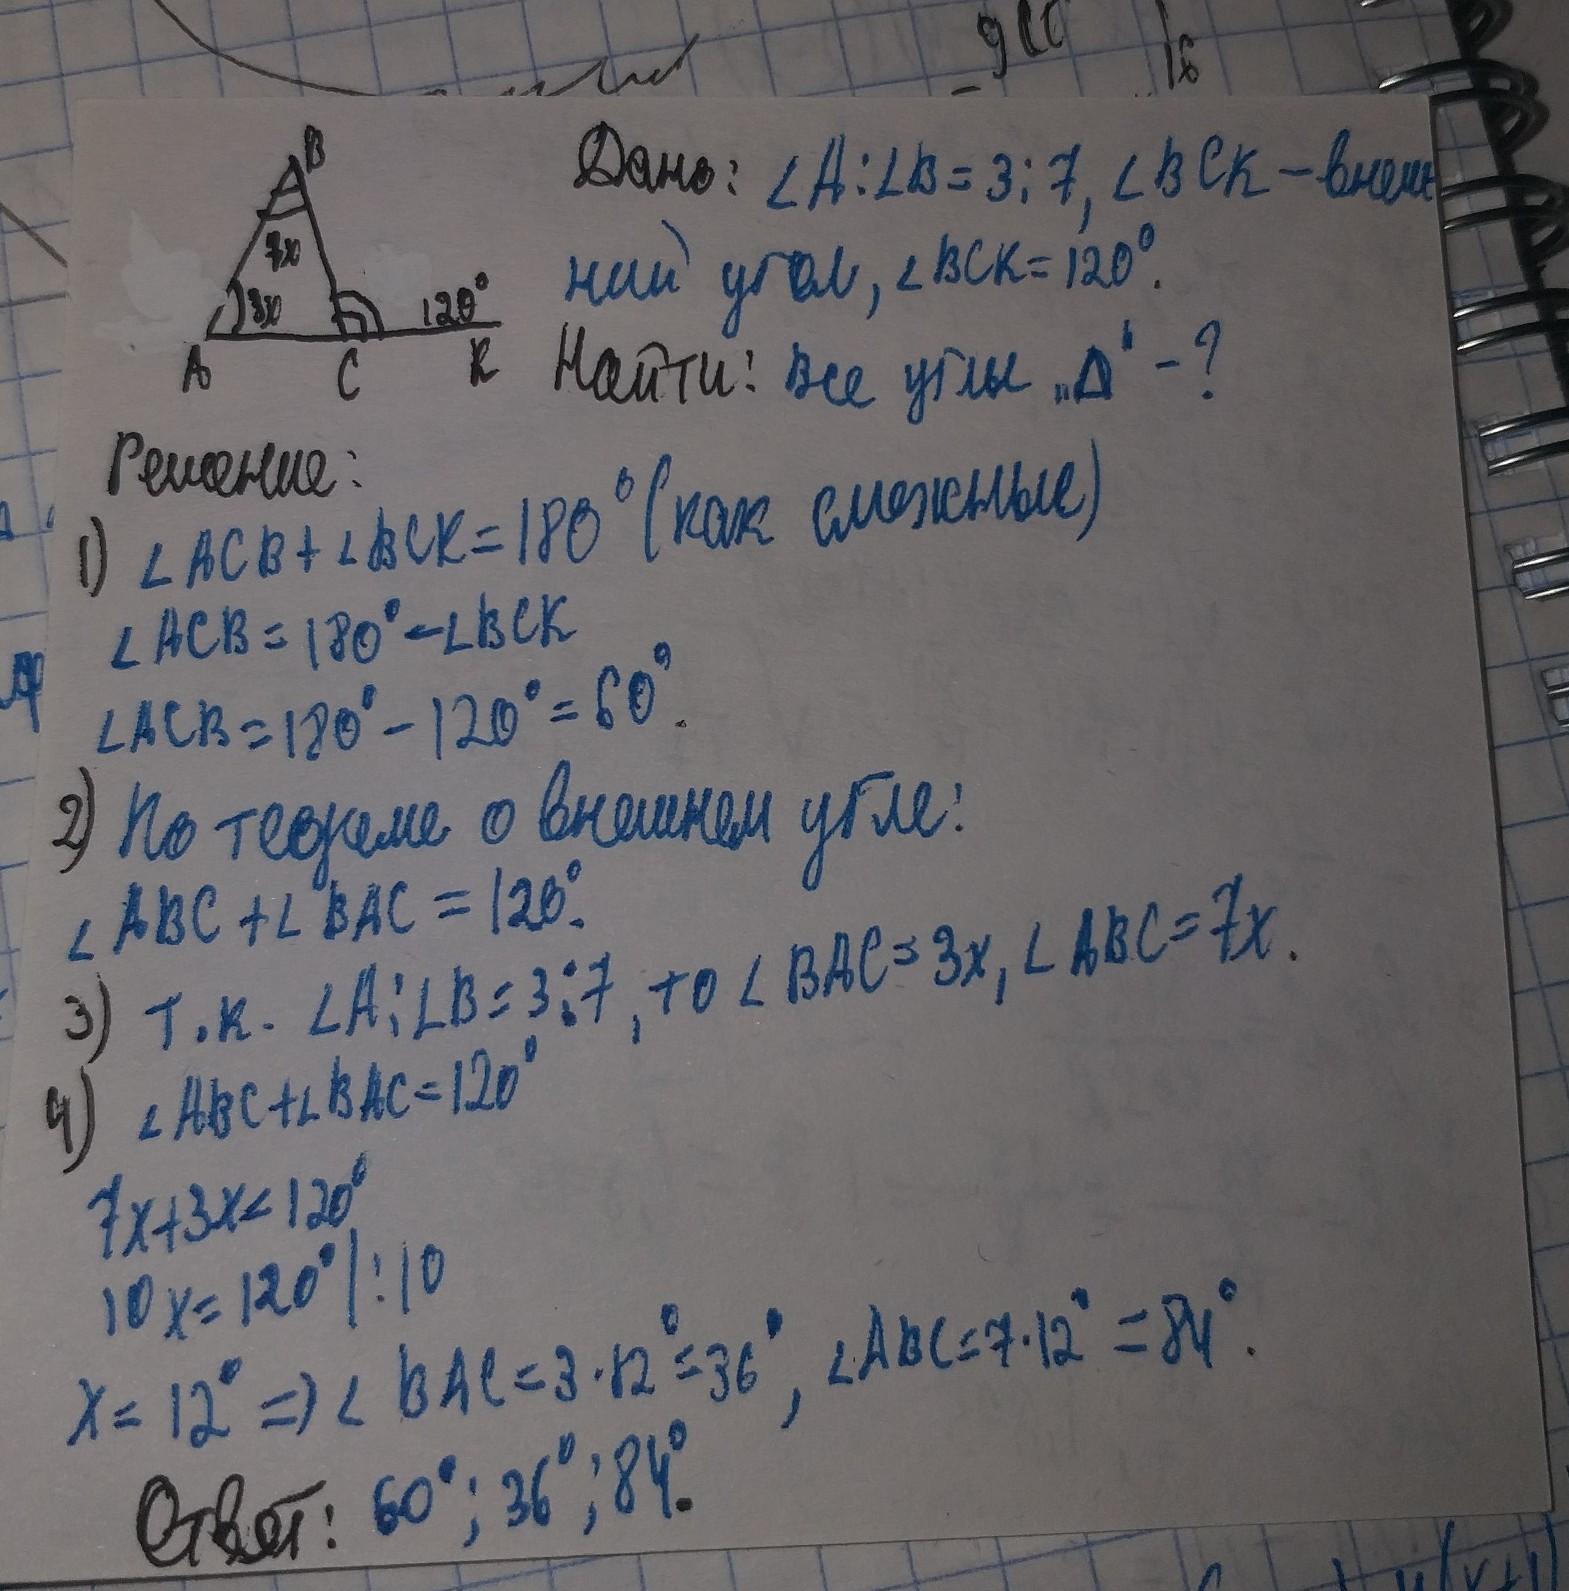 B
7x
3x
120°
A
C
K
Дано: ∠A:∠B=3:7, ∠BCK – внеш-
ний угол, ∠BCK=120°.
Найти: все углы „Δ" - ?
Решение:
1) ∠ACB+∠BCK=180° (как смежные)
∠ACB=180°-∠BCK
∠ACB=180°-120°=60°.
2) По теореме о внешнем угле:
∠ABC+∠BAC=120°.
3) т.к. ∠A:∠B=3:7, то ∠BAC=3x, ∠ABC=7x.
4) ∠ABC+∠BAC=120°
7x+3x=120°
10x=120° |:10
x=12° => ∠BAC=3·12°=36°, ∠ABC=7·12°=84°.
Ответ: 60°; 36°; 84°.